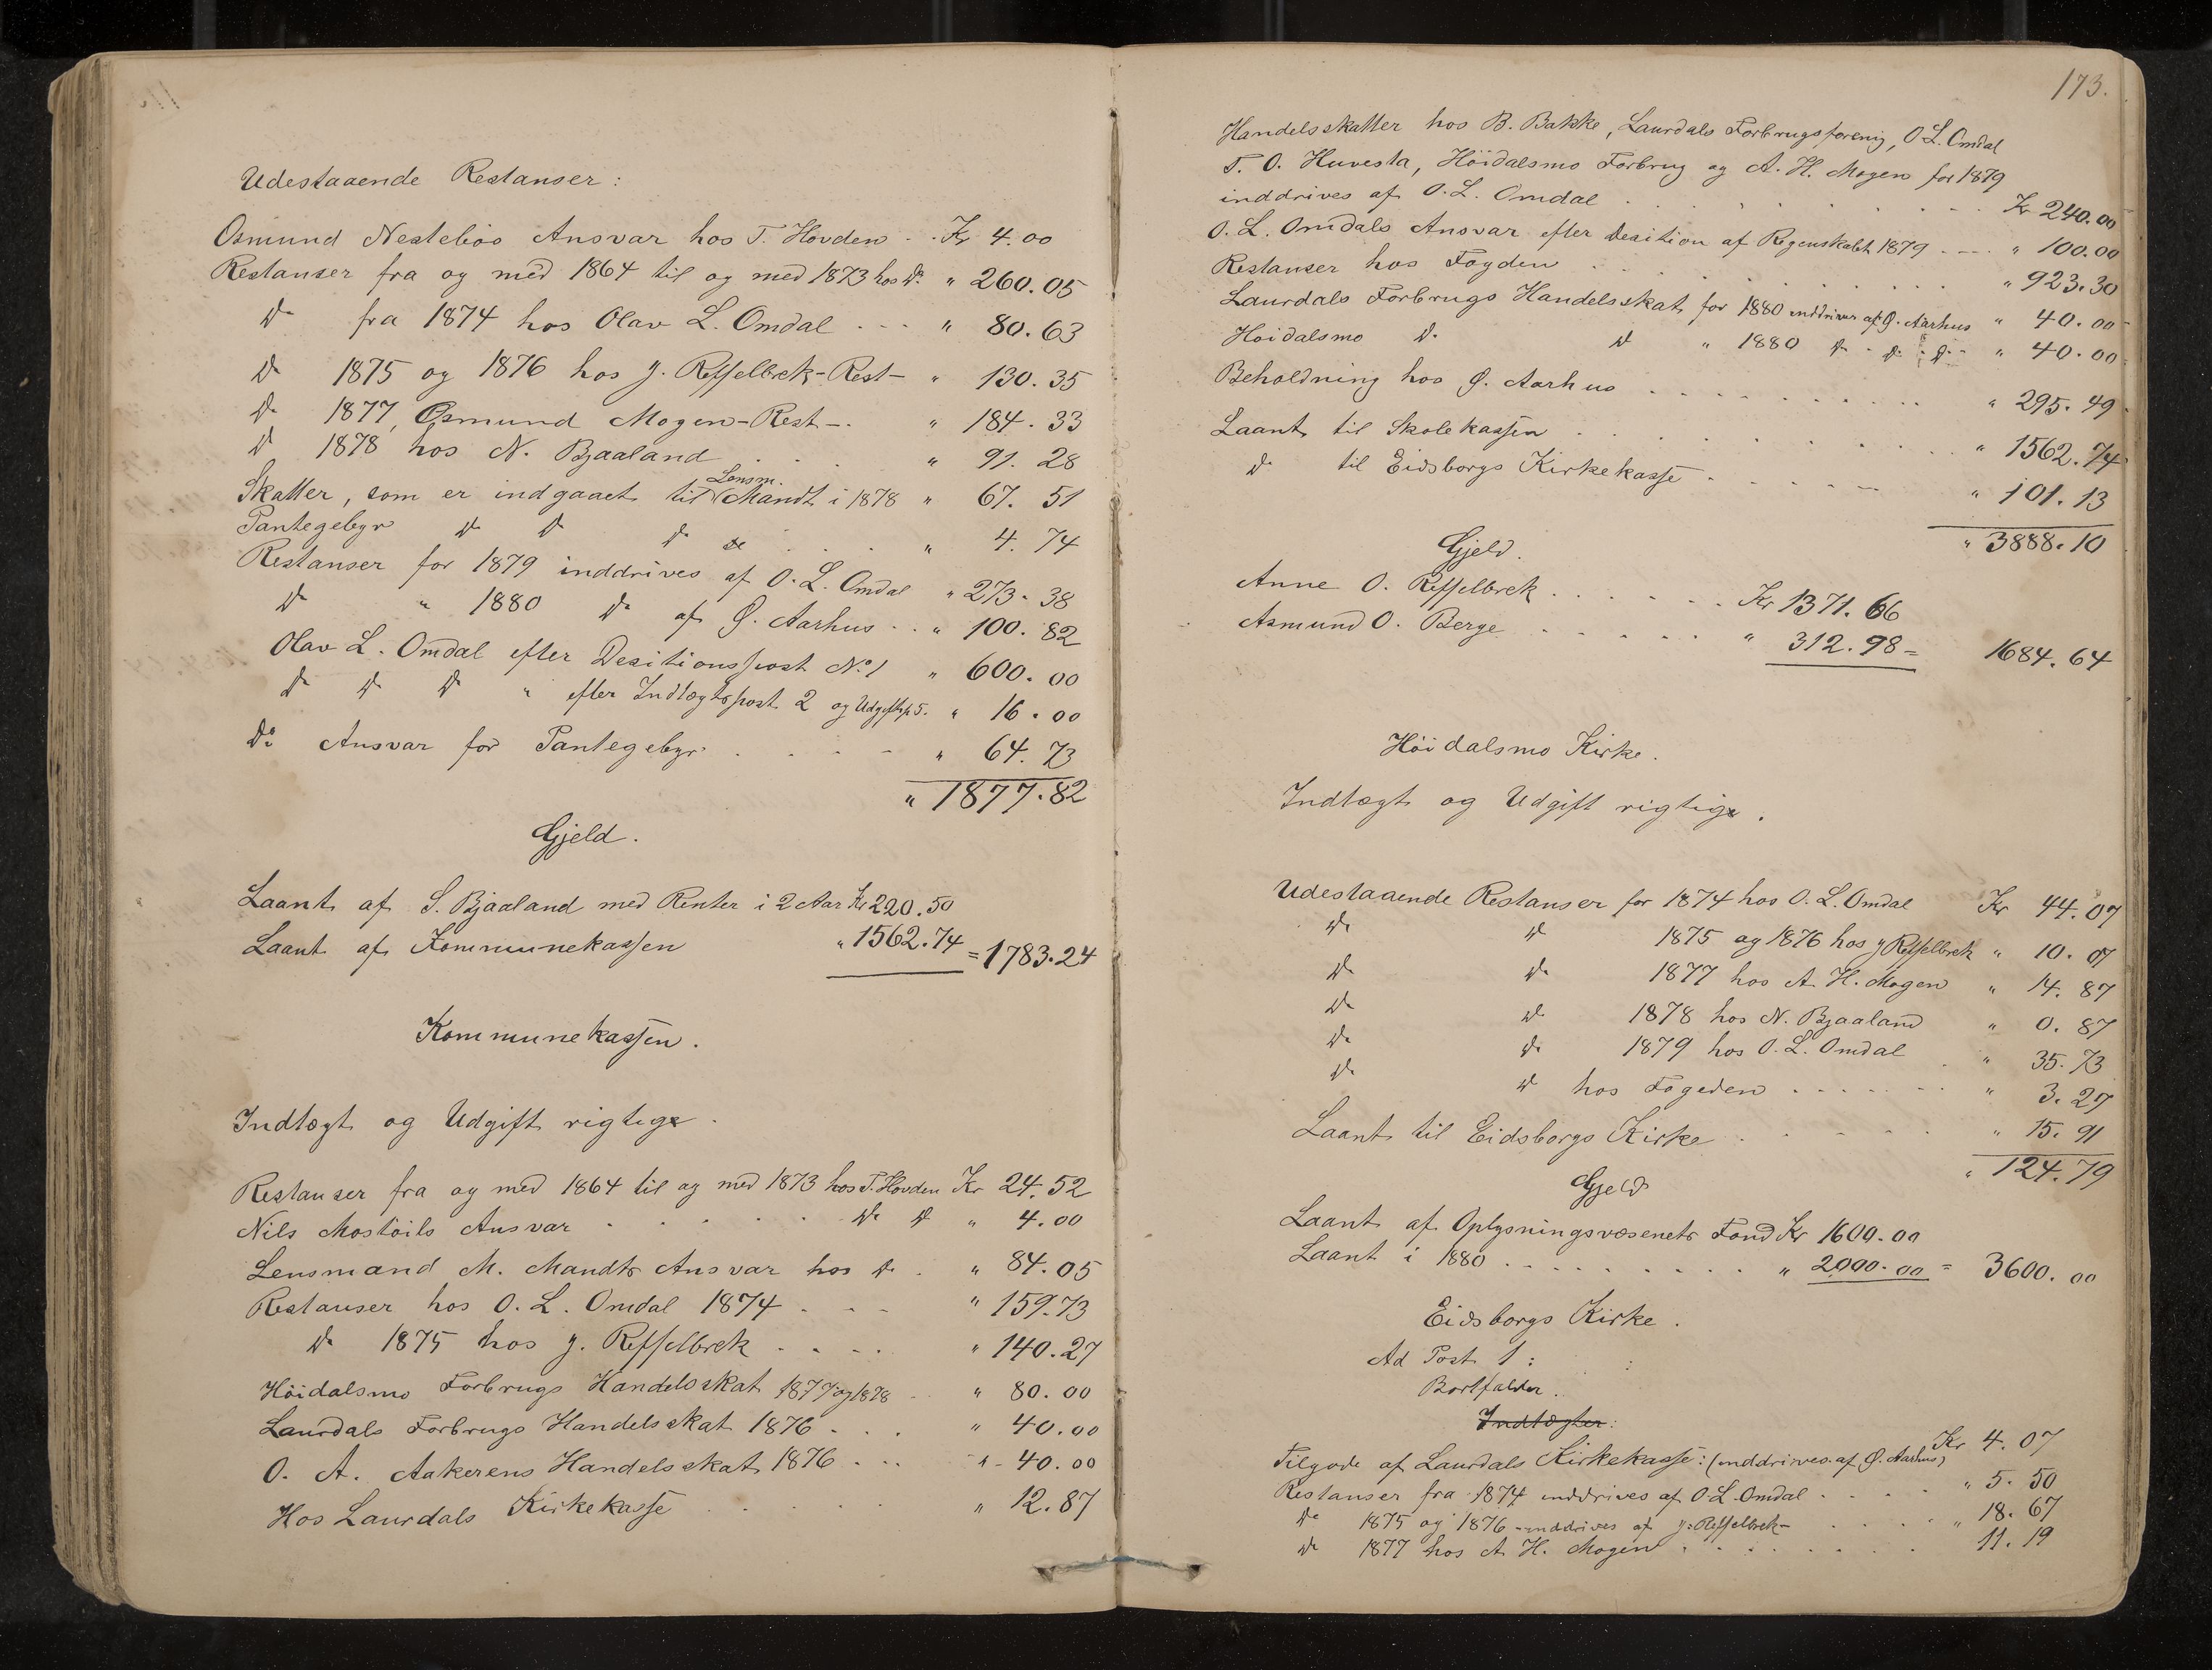 Udestaaende Restanser:
Osmund Nestebøs Ansvar hos T. Hovden . . Kr 4.00
Restanser fra og med 1864 til og med 1873 hos Do " 260.05
Do fra 1874 hos Olav L. Omdal . . . " 80.63
Do 1875 og 1876 hos J. Refselbrek-Rest- " 130.35
Do 1877, Osmund Mogen-Rest-. " 184.33
Do 1878 hos N. Bjaaland . . . " 91.28
Skatter, som er indgaaet til Lensm. Mandt i 1878 " 67.51
Pantegebyr Do Do Do . . . " 4.74
Restanser for 1879 inddrives af O. L. Omdal " 273.38
Do " 1880 Do af Ø. Aarhus . . " 100.82
Olav L. Omdal efter Desitionspost No 1 " 600.00
Do Do Do " efter Indtægtspost 2 og Udgiftsp. 5. " 16.00
Do Ansvar for Pantegebyr . . . " 64.73
" 1877.82
Gjeld.
Laant af S. Bjaaland med Renter i 2 Aar Kr 220.50
Laant af Kommunekassen " 1562.74 = 1783.24
Kommunekassen.
Indtægt og Udgift rigtige.
Restanser fra og med 1864 til og med 1873 hos T. Hovden Kr 24.52
Nils Mostøils Ansvar . . . . . Do Do " 4.00
Lensmand M. Mandts Ansvar hos Do . " 84.05
Restanser hos O. L. Omdal 1874 . . . " 159.73
Do 1875 hos J. Refselbrek . . . . " 140.27
Høidalsmo Forbrugs Handelsskat 1877 og 1878 . . " 80.00
Laurdals Forbrugs Handelsskat 1876 . . . " 40.00
O. A. Aakerens Handelsskat 1876 . . . " 40.00
Hos Laurdals Kirkekasse . . . . . " 12.87
173.
Handelsskatter hos B. Bakke, Laurdals Forbrugsforenig, O L. Omdal
T. O. Huvesta, Höidalsmo Forbrug og A. H. Mogen for 1879
inddrives af O. L. Omdal . . . . . . . Kr 240.00
O. L. Omdals Ansvar efter Desition af Regenskabet 1879 . . . " 100.00
Restanser hos Fogden . . . . . . . " 923.30
Laurdals Forbrugs Handelsskat for 1880 inddrives af Ø. Aarhus " 40.00
Høidalsmo Do Do " 1880 Do - Do - Do - " 40.00
Beholdning hos Ø. Aarhus . . . . . . . " 295.49
Laant til Skolekassen . . . . . . . " 1562.74
Do til Eidsborgs Kirkekasse . . . . . " 101.13
" 3888.10
Gjeld.
Anne O. Refselbrek . . . . . . Kr 1371.66
Asmund O. Berge . . . . . " 312.98 = 1684.64
Höidalsmo Kirke.
Indtægt og Udgift rigtige.
Udestaaende Restanser for 1874 hos O. L. Omdal Kr 44.07
Do Do 1875 og 1876 hos J Refselbrek " 10.07
Do Do 1877 hos A. H. Mogen " 14.87
Do Do 1878 hos N. Bjaaland " 0.87
Do Do 1879 hos O. L. Omdal " 35.73
Do Do hos Fogeden . . . . . . " 3.27
Laant til Eidsborgs Kirke . . . . . " 15.91
" 124.79
Gjeld
Laant af Oplysningsvæsenets Fond Kr 1600.00
Laant i 1880 . . . . . . . . . " 2000.00 = 3600.00
Eidsborgs Kirke.
Ad Post 1:
Bortfalder.
Indtægter:
Tilgode af Laurdals Kirkekasse: (inddrives af Ø. Aarhus) Kr 4.07
Restanser fra 1874 inddrives af O. L. Omdal . . . . " 5.50
Do 1875 og 1876 - inddrives af J. Refselbrek - . . . . " 18.67
Do 1877 hos A H. Mogen . . . . . . . 11.19